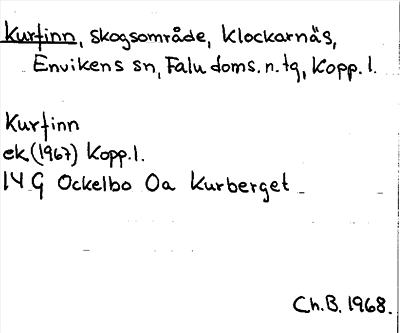 Kurfinn, skogsområde, Klockarnäs,
Envikens sn, Falu doms. n. tg, Kopp. l.
Kurfinn
ek. (1967) Kopp. l.
14 G Ockelbo 0a Kurberget
Ch. B. 1968.